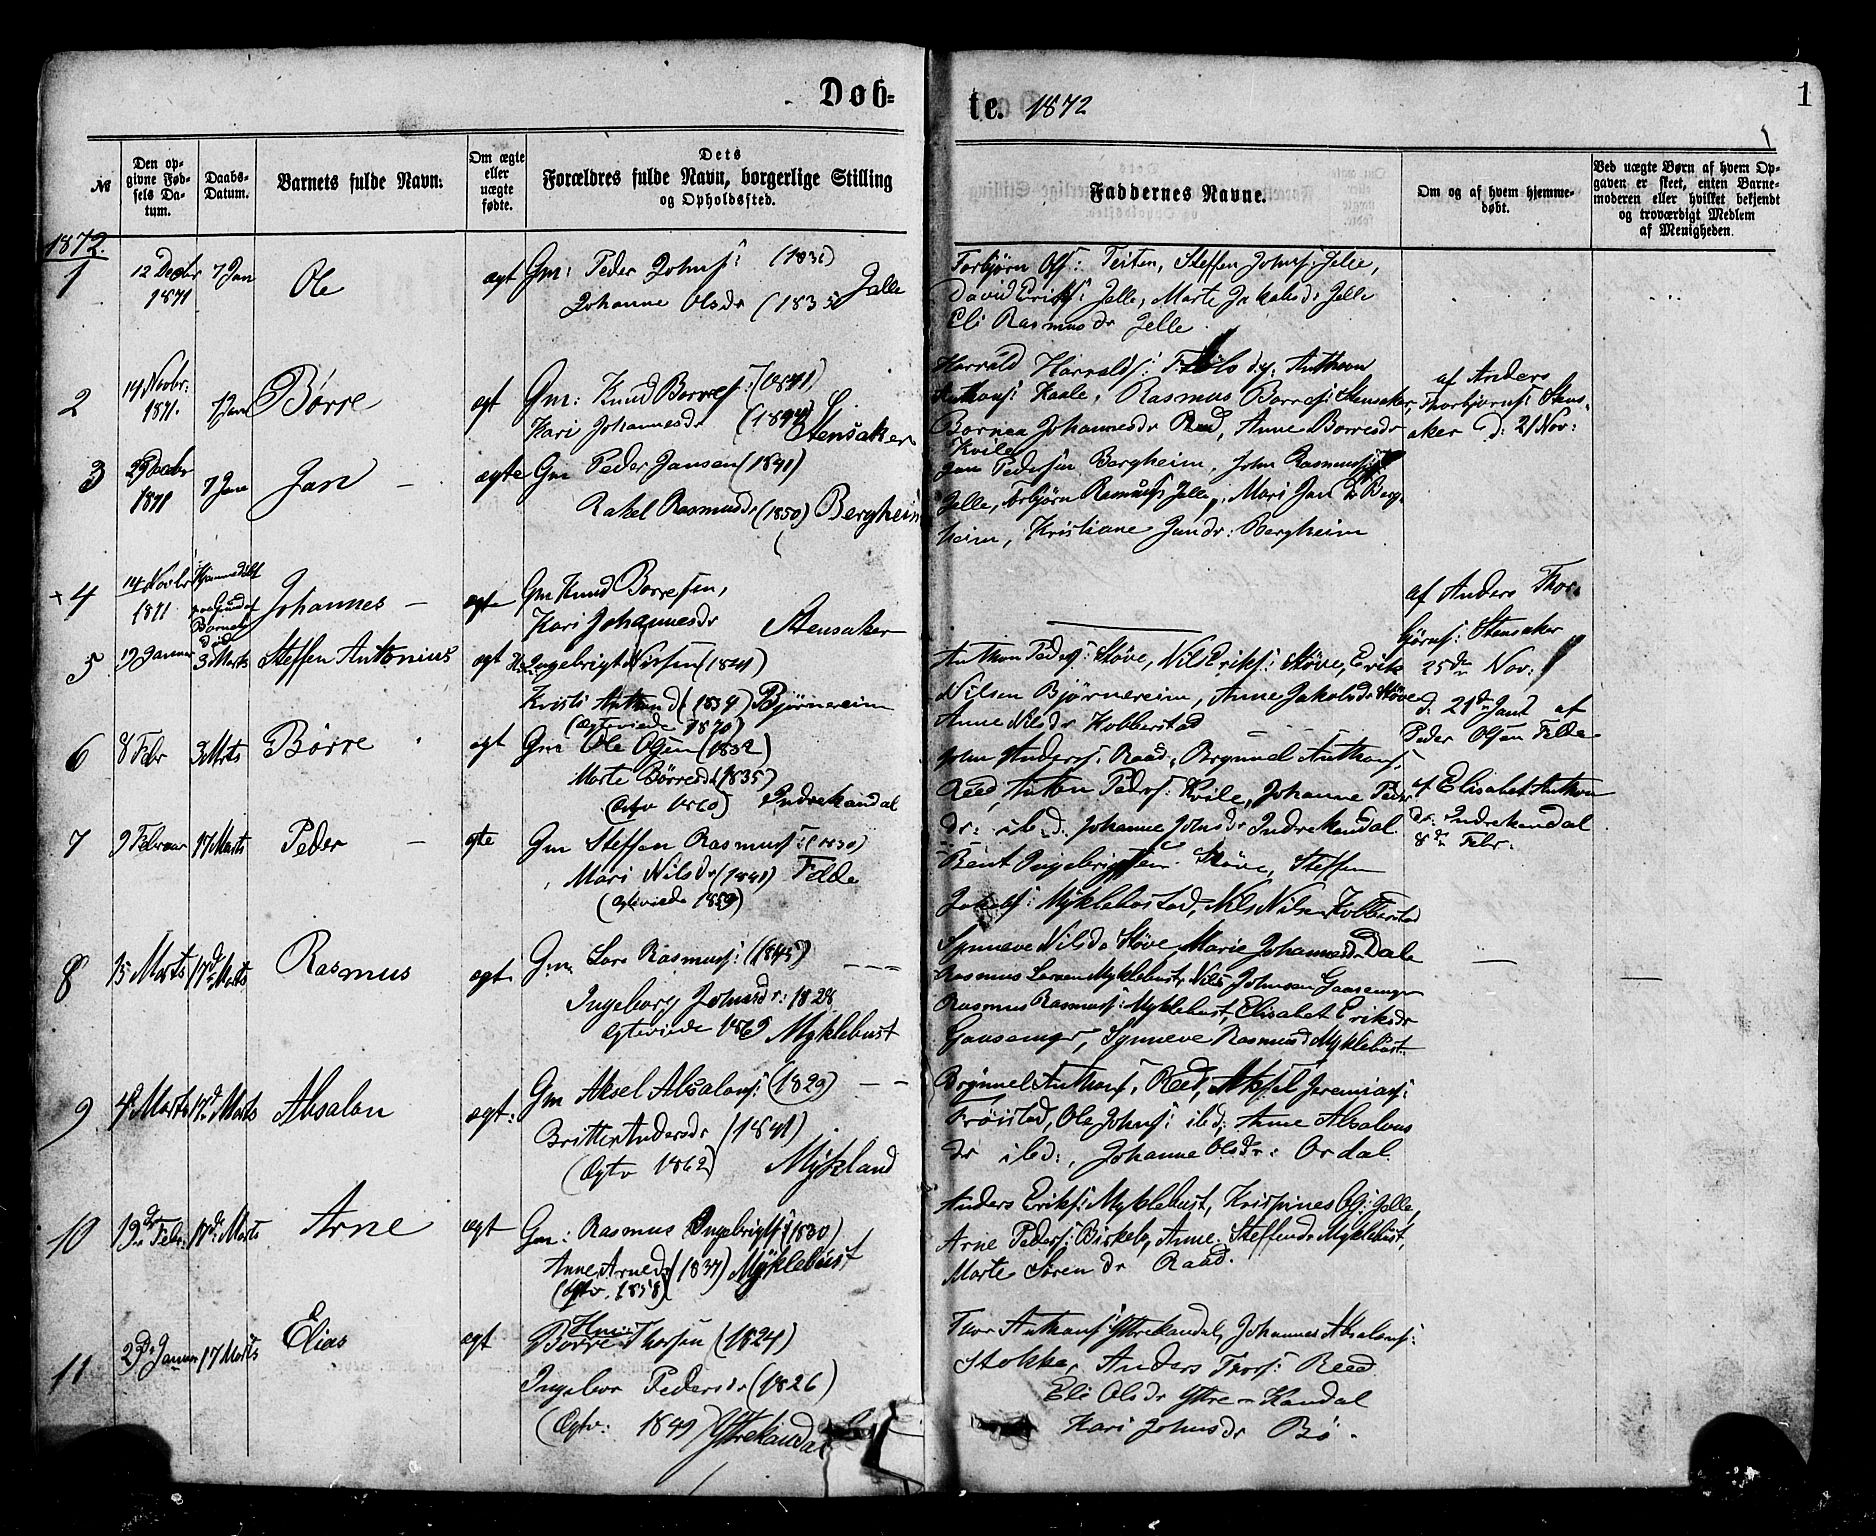 Døb-
te. 1872
1
№
Den op-
givne Fød-
sels Da-
tum.
Daabs-
Datum.
Barnets fulde Navn:
Om ægte
eller
uægte
fødte.
Dets
Forældres fulde Navn, borgerlige Stilling
og Opholdssted.
Faddernes Navne.
Om og af hvem hjemme-
døbt.
Ved uægte Børn af hvem Op-
gaven er skeet, enten Barne-
moderen eller hvilket bekjendt
og troværdigt Medlem
af Menigheden.
1872.
1
12 Decbr
1871
7 Jan
Ole
ægt
Gm: Peder Johns:
Johanne Olsdr (1835
Jelle
Torbjørn Ols: Teiten, Steffen Johns: Jelle,
David Eriks: Jelle, Marte Jakobsd: Jelle
Eli Rasmusdr Jelle
2
14 Novbr:
1871.
7 Jan
Børre
ægt
Gm: Knud Borres: (1841)
Kari Johannesdr
Stensaker
Harrald Harralds:
Kaale, Rasmus Borres: Stensaker,
Johannesdr Reed, Anne Borresdr
Kvile
af Anders
Thorbjørns: Stens-
aker d: 21 Nov:
3
1871
7 Jan
Jan
ægte
Gm Peder Jansen (1841)
Rakel Rasmusdr (1850) Bergheim
Jan Pedersen Bergheim, John Rasmuss:
Jelle, Torbjørn Rasmuss Jelle, Mari Jansdr Berg-
heim, Kristiane Jansdr: Bergheim
4
14 Novbr
1871.
Hjemmedøbt
Johannes
ægte
Gm Knud Borresen,
Kari Johannesdr
Stensaker
af Anders Thor-
bjørns: Stensaker
25de Nov:
5
19 Januar
3 Marts
Steffen Antonius
ægt
Ingebrigt Nilsen (1841)
Kristi (1839) Bjørnereim
(Ægteviede 1870)
Anthon Peders: Støve, Nils Eriks: Støve, Erik
Nilsen Bjørnereim, Anne Jakobsdr Støve
Anne Nilsdr Kobberstad
d: 21de Janr af
Peder Olsen Felde
6
8 Febr
3 Marts
Børre
ægt
Gm Ole Olsen (1832)
Marte Børresdr (1835)
(Ægtv 1860) Indrekandal
John Anders: Raad, Brynnel Anthons:
Reed, Anton Peders: Kvile, Johanne Peder
dr: ibd: Johanne Johnsdr Indrekandal
af Elisabet Anthon
dr: Indrekandal
8de Febr:
7
9 Februar
17 Marts
Peder
ægte
Gm Steffen Rasmuss: (1830)
Mari Nilsdr (1841) Felde
(ægteviede 1859)
Bent Ingebrigtsen Støve, Steffen
Jakobs: Myklebostad, Nils Nilsen Kobberstad
Synneve Nilsdr Støve, Marie Johannesdr Dale
8
15 Marts
17de Marts
Rasmus
ægt
Gm Lars Rasmuss: (1845)
Ingeborg Johnsdr: 1828
Ægteviede 1869 Myklebust
Rasmus Larsen Myklebust, Nils Johnsen Gaasemyr
Rasmus Rasmuss: Myklebust, Elisabet Eriksdr
Gaasemyr, Synneve Rasmusd Myklebust
9
4de Marts
17de Marts
Absalon
ægt:
Gm Aksel Absalons: (1829)
Britte Andersdr (1841)
(Ægtv 1862) Mykland
Brynnel Anthons: Reed, Aksel Jeremias:
Frøistad, Ole Johns: ibd, Anne Absalons
dr ibd:, Johanne Olsdr: Ordal
10
19de Febr:
17de Marts
Arne
ægt
Gm: Rasmus Ingebrigts: (1830)
Anne Arnedr (1837) Myklebust
(Ægtv. 1858)
Anders Eriks: Myklebust, Krispines Ols: Jelle,
Arne Peders: Birkeb, Anne Steffensdr Myklebust,
Marte Sørendr Raad.
11
29de Januar
17 Marts
Elias
ægt
Hm:
Børre Thorsen (1824)
Ingebor Pedersdr (1826)
(Ægtv: 1849) Ytrekandal
Thor Anthons: Ytrekandal, Johannes Absalons:
Stokke, Anders Thors: Reed
Eli Olsdr Ytre-Kandal
Kari Johnsdr Bø.